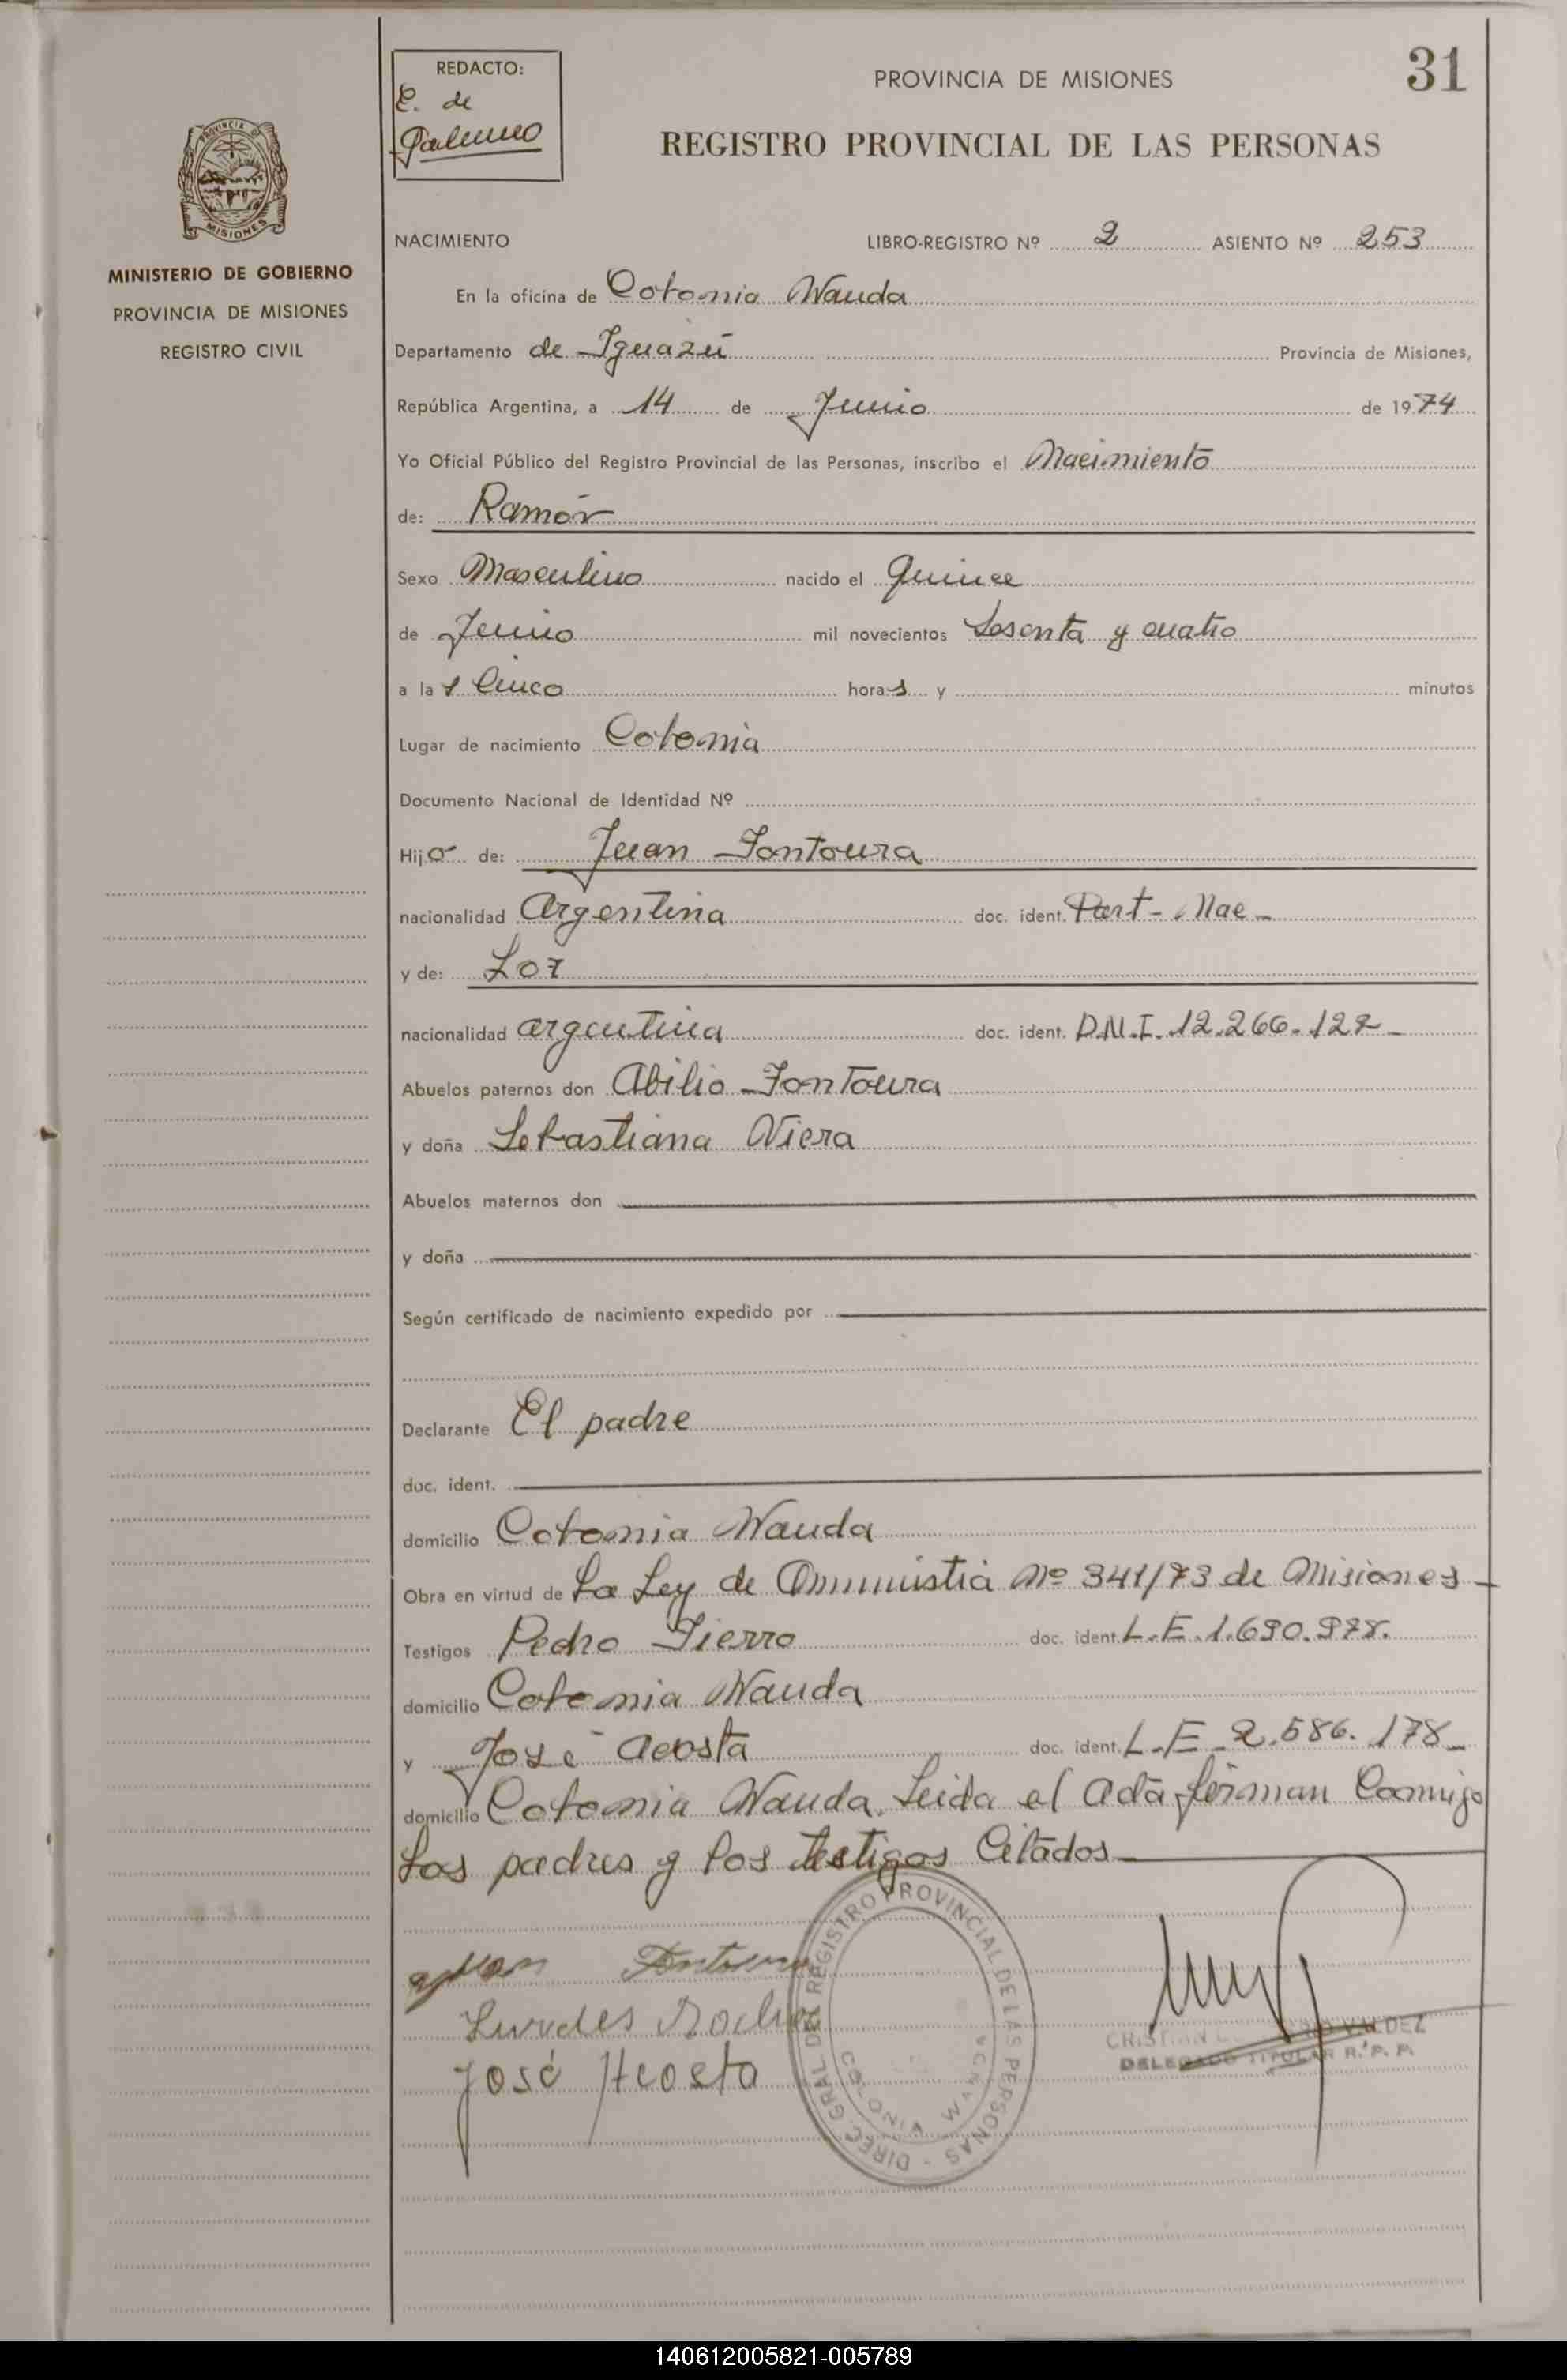 REDACTO:
E. de
Palermo
PROVINCIA DE MISIONES
31
REGISTRO PROVINCIAL DE LAS PERSONAS
PROVINCIA DE
MISIONES
MINISTERIO DE GOBIERNO
PROVINCIA DE MISIONES
REGISTRO CIVIL
NACIMIENTO LIBRO-REGISTRO Nº 2 ASIENTO Nº 253
En la oficina de Colonia Wanda
Departamento de Iguazú Provincia de Misiones,
República Argentina, a 14 de Junio de 1974
Yo Oficial Público del Registro Provincial de las Personas, inscribo el Nacimiento
de: Ramón
Sexo Masculino nacido el Quince
de Junio mil novecientos Sesenta y cuatro
a las Cinco horas y minutos
Lugar de nacimiento Colonia
Documento Nacional de Identidad Nº
Hijo de: Juan Fontoura
nacionalidad Argentina doc. ident. Part-Nac-
y de:
nacionalidad argentina doc. ident. D.N.I. 12.266.127-
Abuelos paternos don Abilio Fontoura
y doña Sebastiana Viera
Abuelos maternos don
y doña
Según certificado de nacimiento expedido por
Declarante El padre
doc. ident.
domicilio Colonia Wanda
Obra en virtud de La Ley de Ammistia Nº 341/73 de Misiones-
Testigos Pedro Fierro doc. ident. L.E. 1.690.978.
domicilio Colonia Wanda
y José Acosta doc. ident. L.E. 2.586.178-
domicilio Colonia Wanda. Leida el acta firman Conmigo
Los padres y los testigos Citados
Juan Fontoura
Lurdes
José Acosta
DIREC. GRAL. DEL REGISTRO PROVINCIAL DE LAS PERSONAS -
COLONIA WANDA
CRISTIAN VALDEZ
DELEGADO TITULAR R.P.P.
140612005821-005789